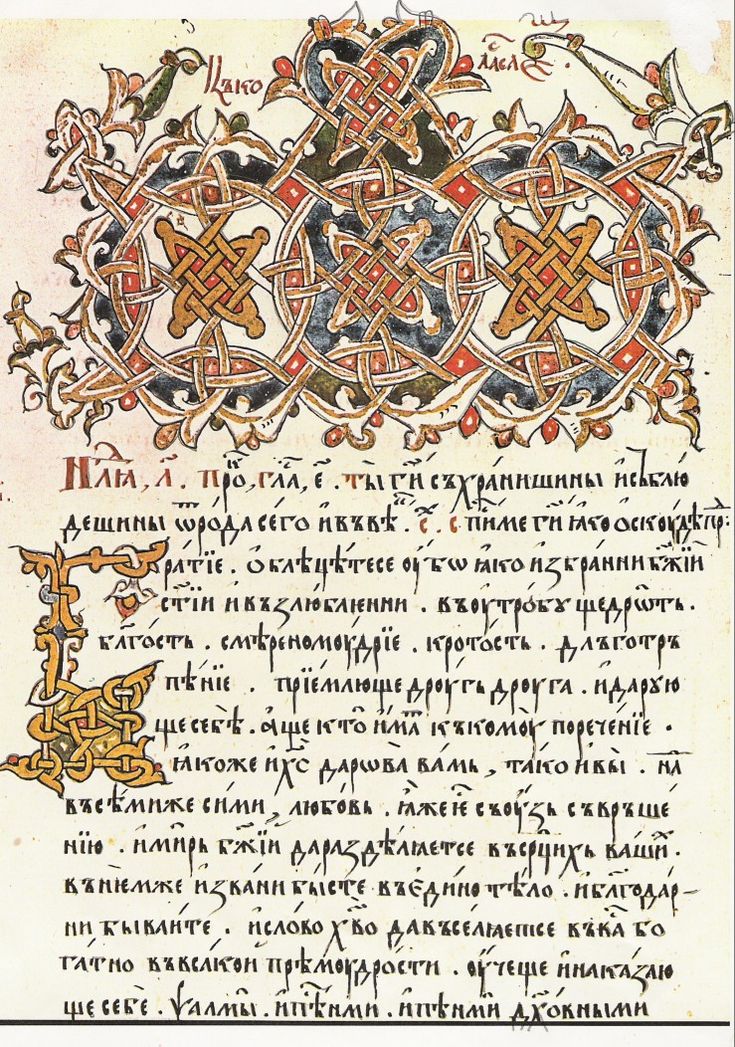 Цъко
Нл҃ꙗ, л҃. прⷪ҇к, гла҃, е҃. ты ги҃ съхраниши ны и съблю
деши ны ѿ рода сего и въ вѣⷦ҇. с҃. с҃п҃и ме ги҃ ꙗко оскоудѣ прⷫ҇:
Братїе. облѣцѣте се оубѡ ꙗко избранни бж҃їи
ст҃їи и възлюблѥнни. въ оутробу щедрѡть.
бл҃гость. смѣреномоудрїе. кротость. длъготръ
пѣнїе. прїемлюще дроугь дроуга. и дарую
ще себѣ. аще кто имаⷮ къ комоу пореченїе.
ꙗкоже и хс҃ дарѡва вамь, тако и вы. наⷣ
въсѣми же сими, любовь. ꙗже ѥⷭ҇ съоузь съвръше
нїю. и мирь бж҃їи да раздѣлꙗет се въ срⷣцихь ваши.
въ нѥмже и звани бысте въ едино тѣло. и бл҃годар-
ни бываите. и слово хв҃о да въселꙗет се въ ваⷭ҇ бо
гатно въ всакои прѣмоудрости. оучеще и наказаю
ще себе. ѱалмы. и пѣнми. и пѣнми дх҃овными